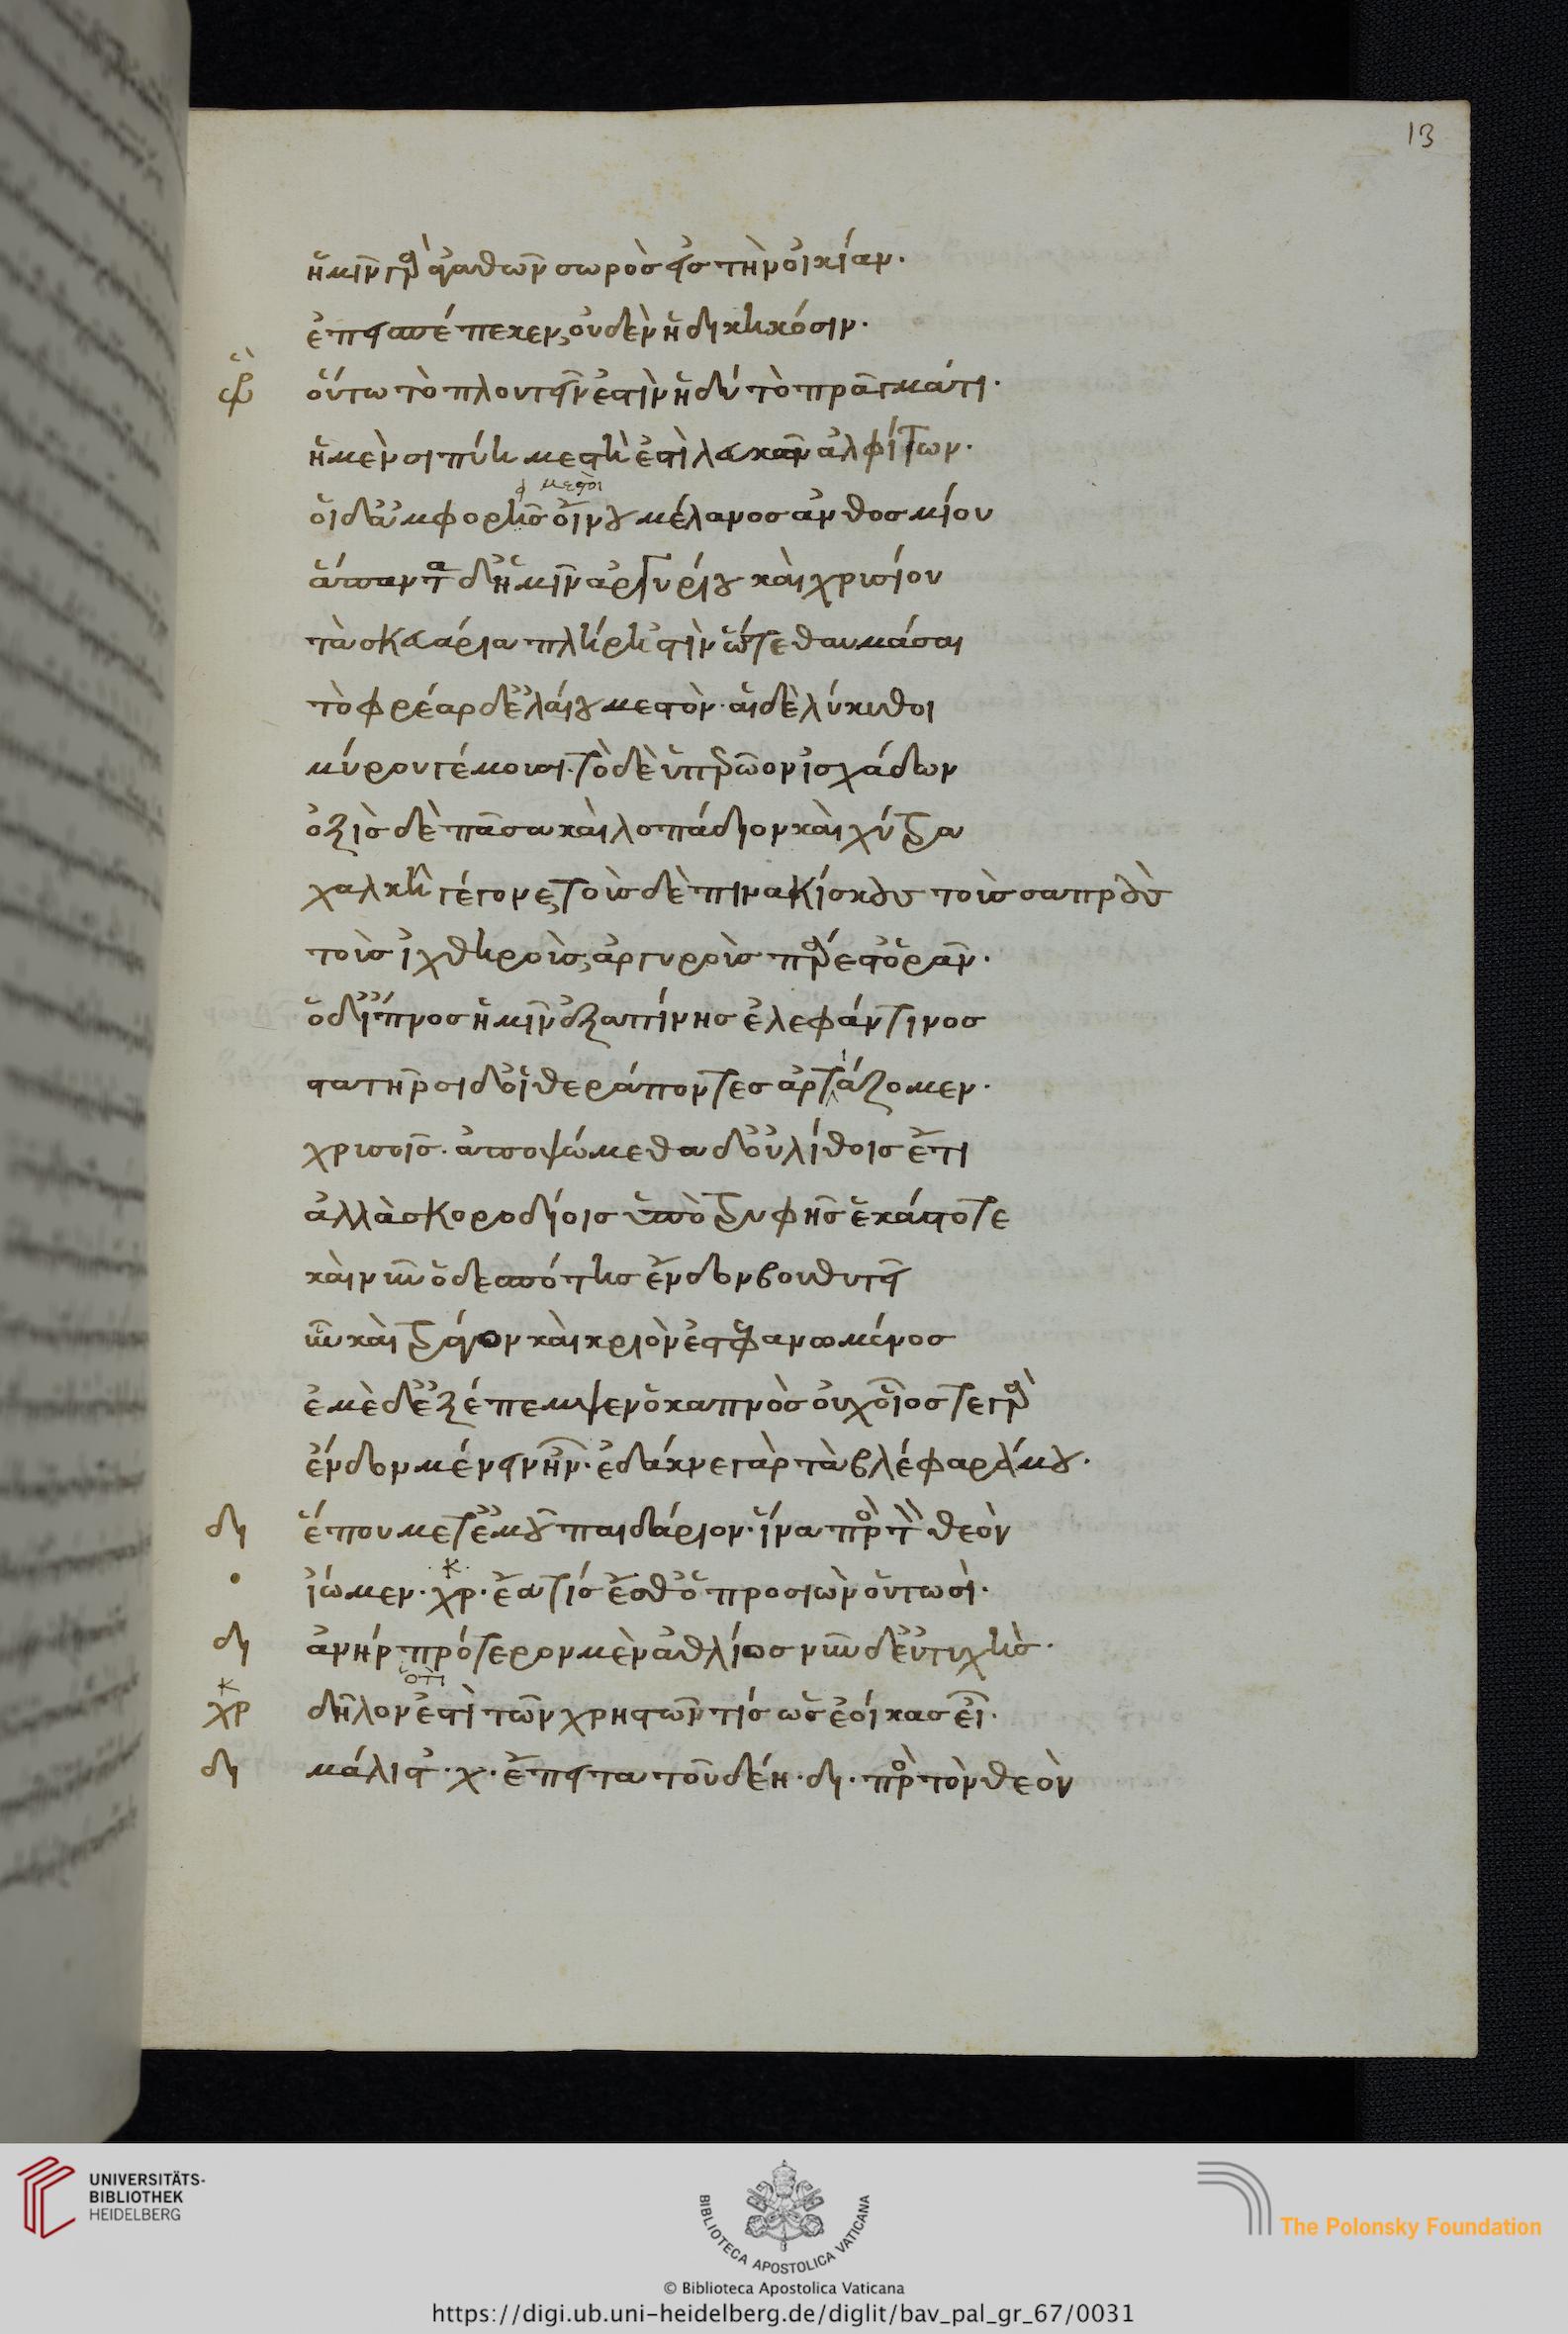 13
ἡμῖν γὰρ ἀγαθῶν σωρὸς εἰς τὴν οἰκίαν.
ἐπεισπέπεκεν, οὐδὲν ἠδικηκόσιν.
οὕτω τὸ πλουτεῖν ἐστὶν ἡδύ τὸ πρᾶγμά τι.
ἡ μὲν σιπύη μεστὴ ἐστὶ λευκῶν ἀλφίτων.
μεστοὶ
οἱ δ' ἀμφορῆς οἴνου μέλανος ἀνθοσμίου
ἅπαντα δ' ἡμῖν ἀργυρίου καὶ χρυσίου
τὰ σκευάρια πλήρη 'στὶν ὥστε θαυμάσαι
τὸ φρέαρ δ' ἐλαίου μεστὸν. αἱ δὲ λήκυθοι
μύρου γέμουσι. τὸ δὲ ὑπερῶον ἰσχάδων
ὀξὶς δὲ πᾶσα καὶ λοπάδιον καὶ χύτρα
χαλκῆ γέγονε, τοὺς δὲ πινακίσκους τοὺς σαπροὺς
τοὺς ἰχθυηροὺς, ἀργυροῦς πάρεσθ' ὁρᾶν.
ὁ δ' ἰπνὸς ἡμῖν ἐξαπίνης ἐλεφάντινος
στατῆρσι δ' οἱ θεράποντες ἀρτιάζομεν.
χρυσοῖς. ἀποψώμεθα δ' οὐ λίθοις ἔτι
ἀλλὰ σκοροδίοις ὑπὸ τρυφῆς ἑκάστοτε
καὶ νῦν ὁ δεσπότης ἔνδον βουθυτεῖ
ὗν καὶ τράγον καὶ κριὸν ἐστεφανωμένος
ἐμὲ δ' ἐξέπεμψεν ὁ καπνὸς οὐχ οἷός τε γὰρ
ἔνδον μένειν ἦν. ἔδακνε γὰρ τὰ βλέφαρά μου.
δι ἕπου μετ' ἐμοῦ παιδάριον. ἵνα πρὸς τὸν θεὸν
ἴωμεν. χρ. ἔα τίς ἔσθ' ὁ προσιὼν οὑτωσί.
δι ἀνήρ πρότερον μὲν ἄθλιος νῦν δ' εὐτυχής.
ὅτι
χρ δῆλον ἐστὶ τῶν χρηστῶν τίς ὡς ἔοικας εἶ.
δι μάλιστ'. χ. ἔπειτα τοῦ δέη. δι. πρὸς τὸν θεὸν
UNIVERSITÄTS-
BIBLIOTHEK
HEIDELBERG
BIBLIOTECA APOSTOLICA VATICANA
The Polonsky Foundation
© Biblioteca Apostolica Vaticana
https://digi.ub.uni-heidelberg.de/diglit/bav_pal_gr_67/0031